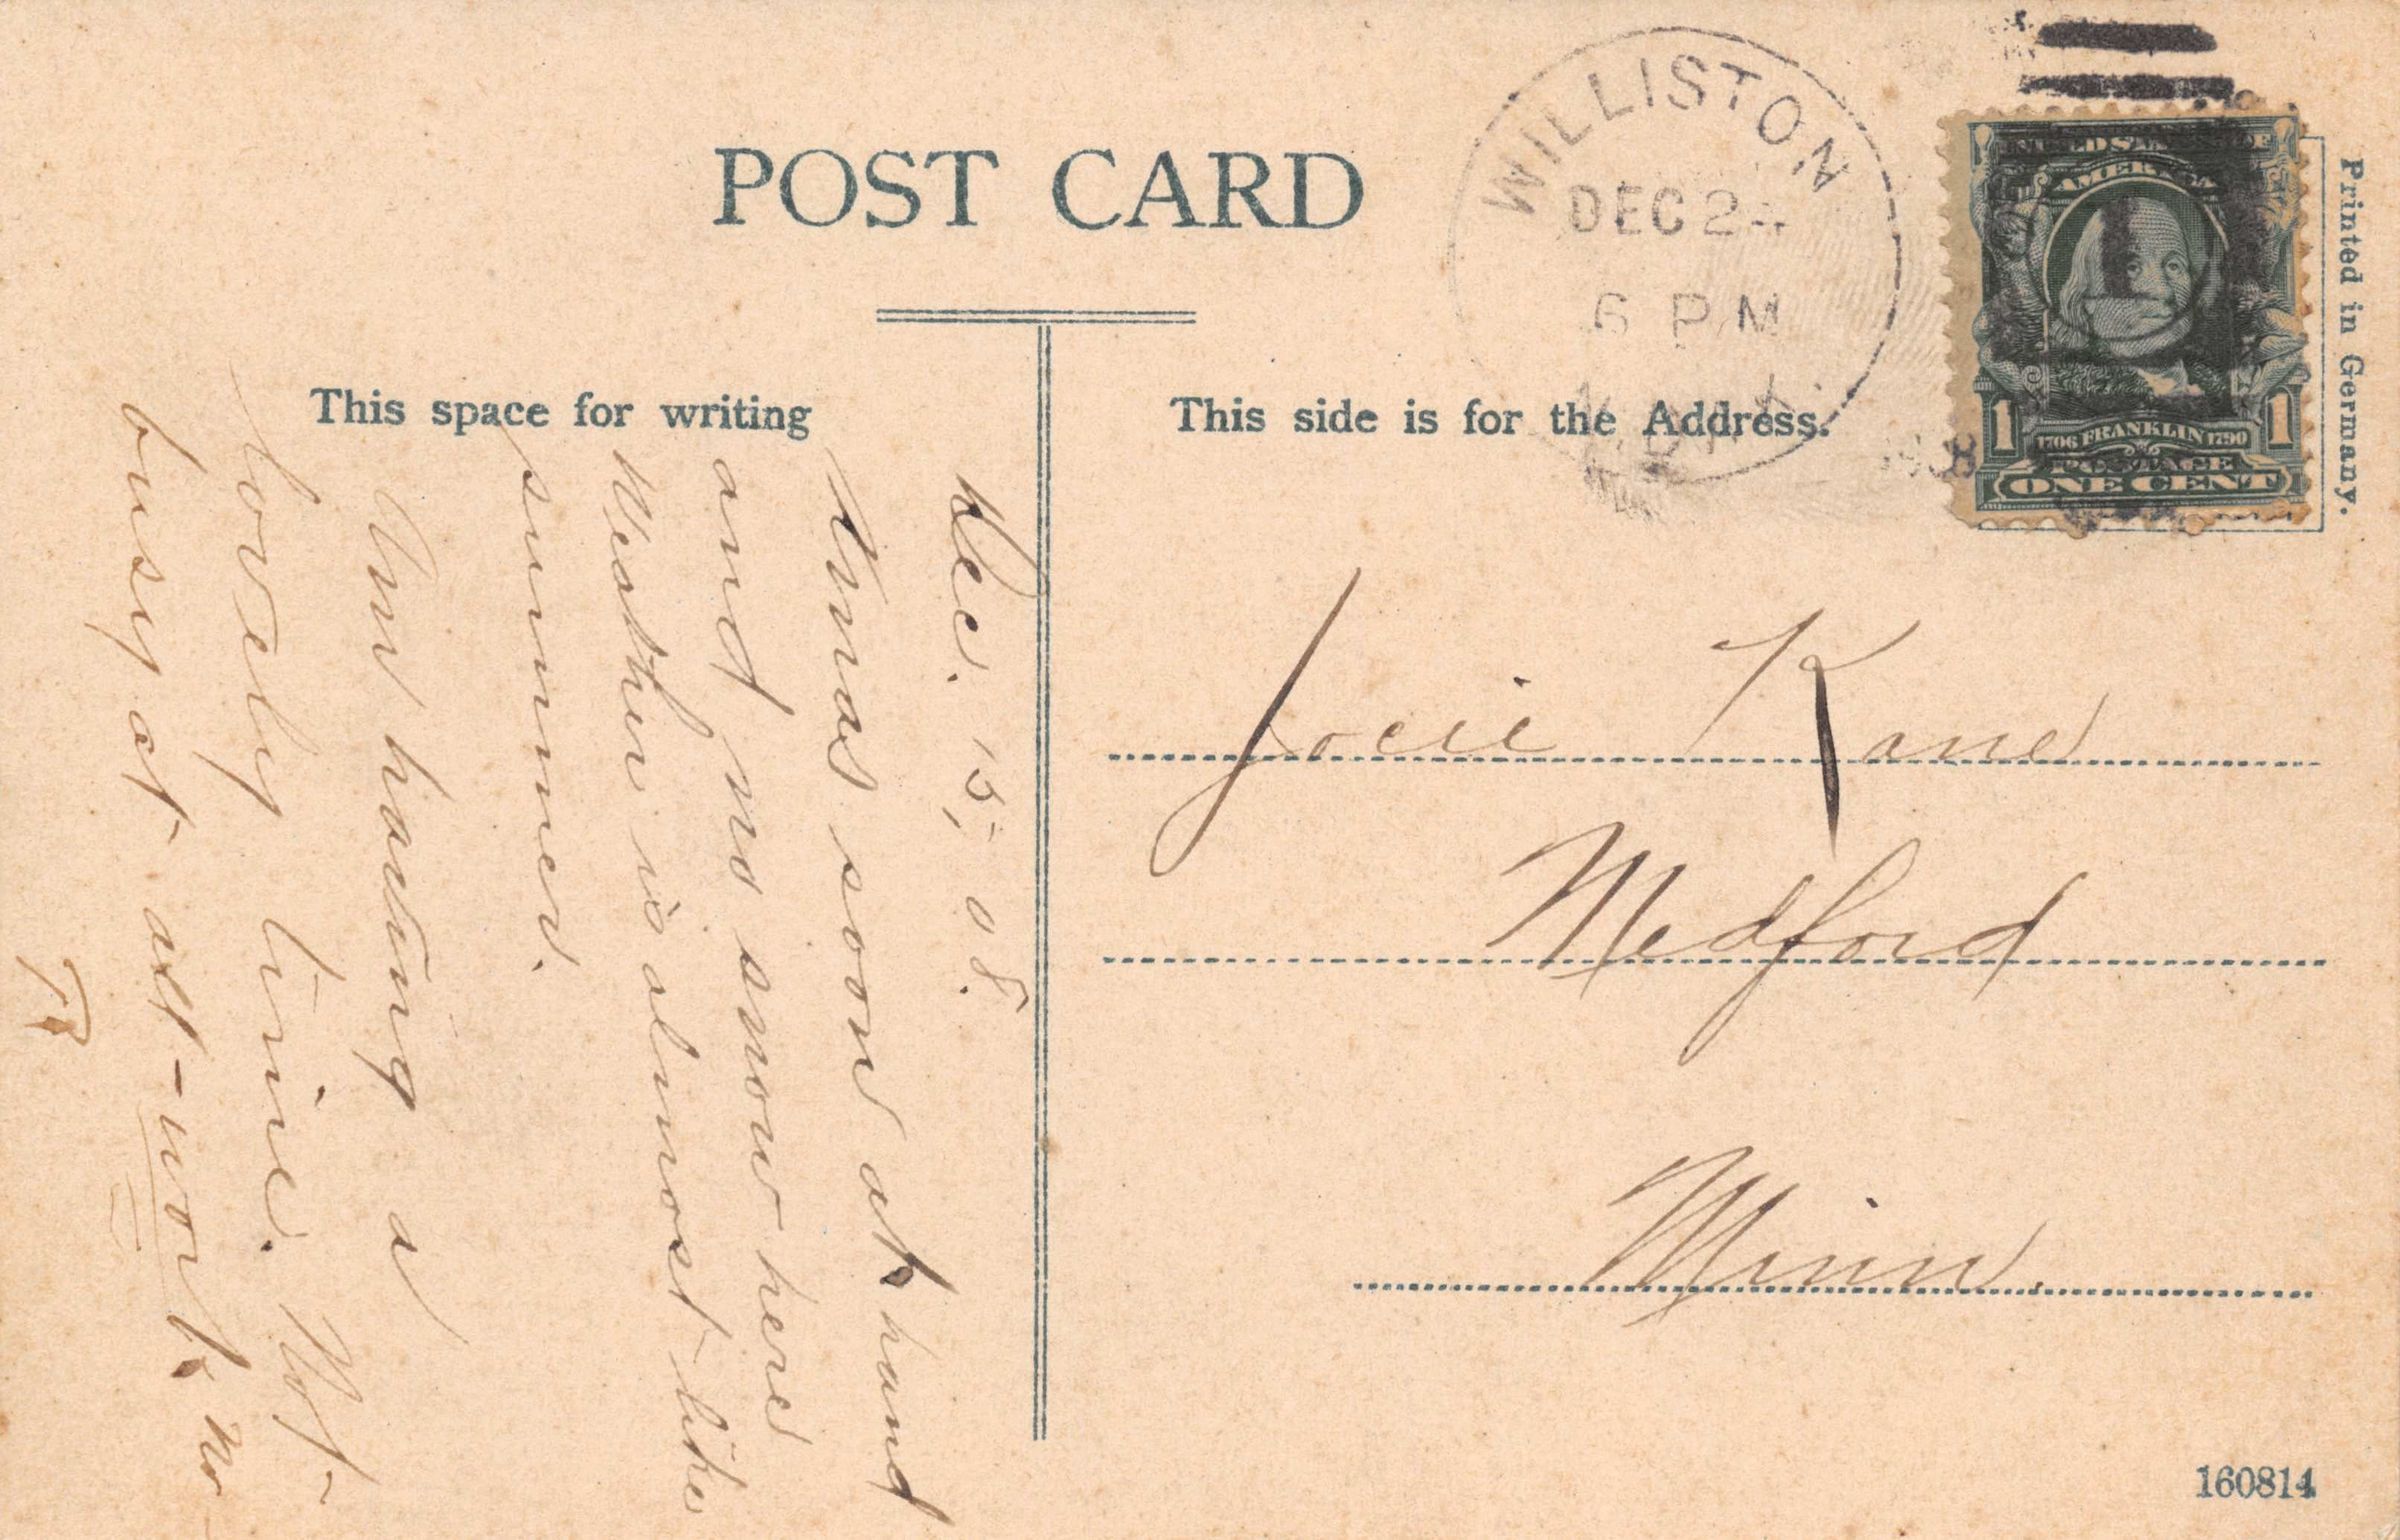 POST CARD
This space for writing
This side is for the Address.
Printed in Germany.
WILLISTON
DEC 24
6 PM
N. DAK.
1908
UNITED STATES OF
AMERICA
1706 FRANKLIN 1790
POSTAGE
1 ONE CENT 1
Dec. 15, 08.
Xmas soon at hand
and no snow here
Weather is almost like
summer.
Am having a
lovely time. Not
busy at all - work, no
Josie Kane
Medford
Minn.
160814